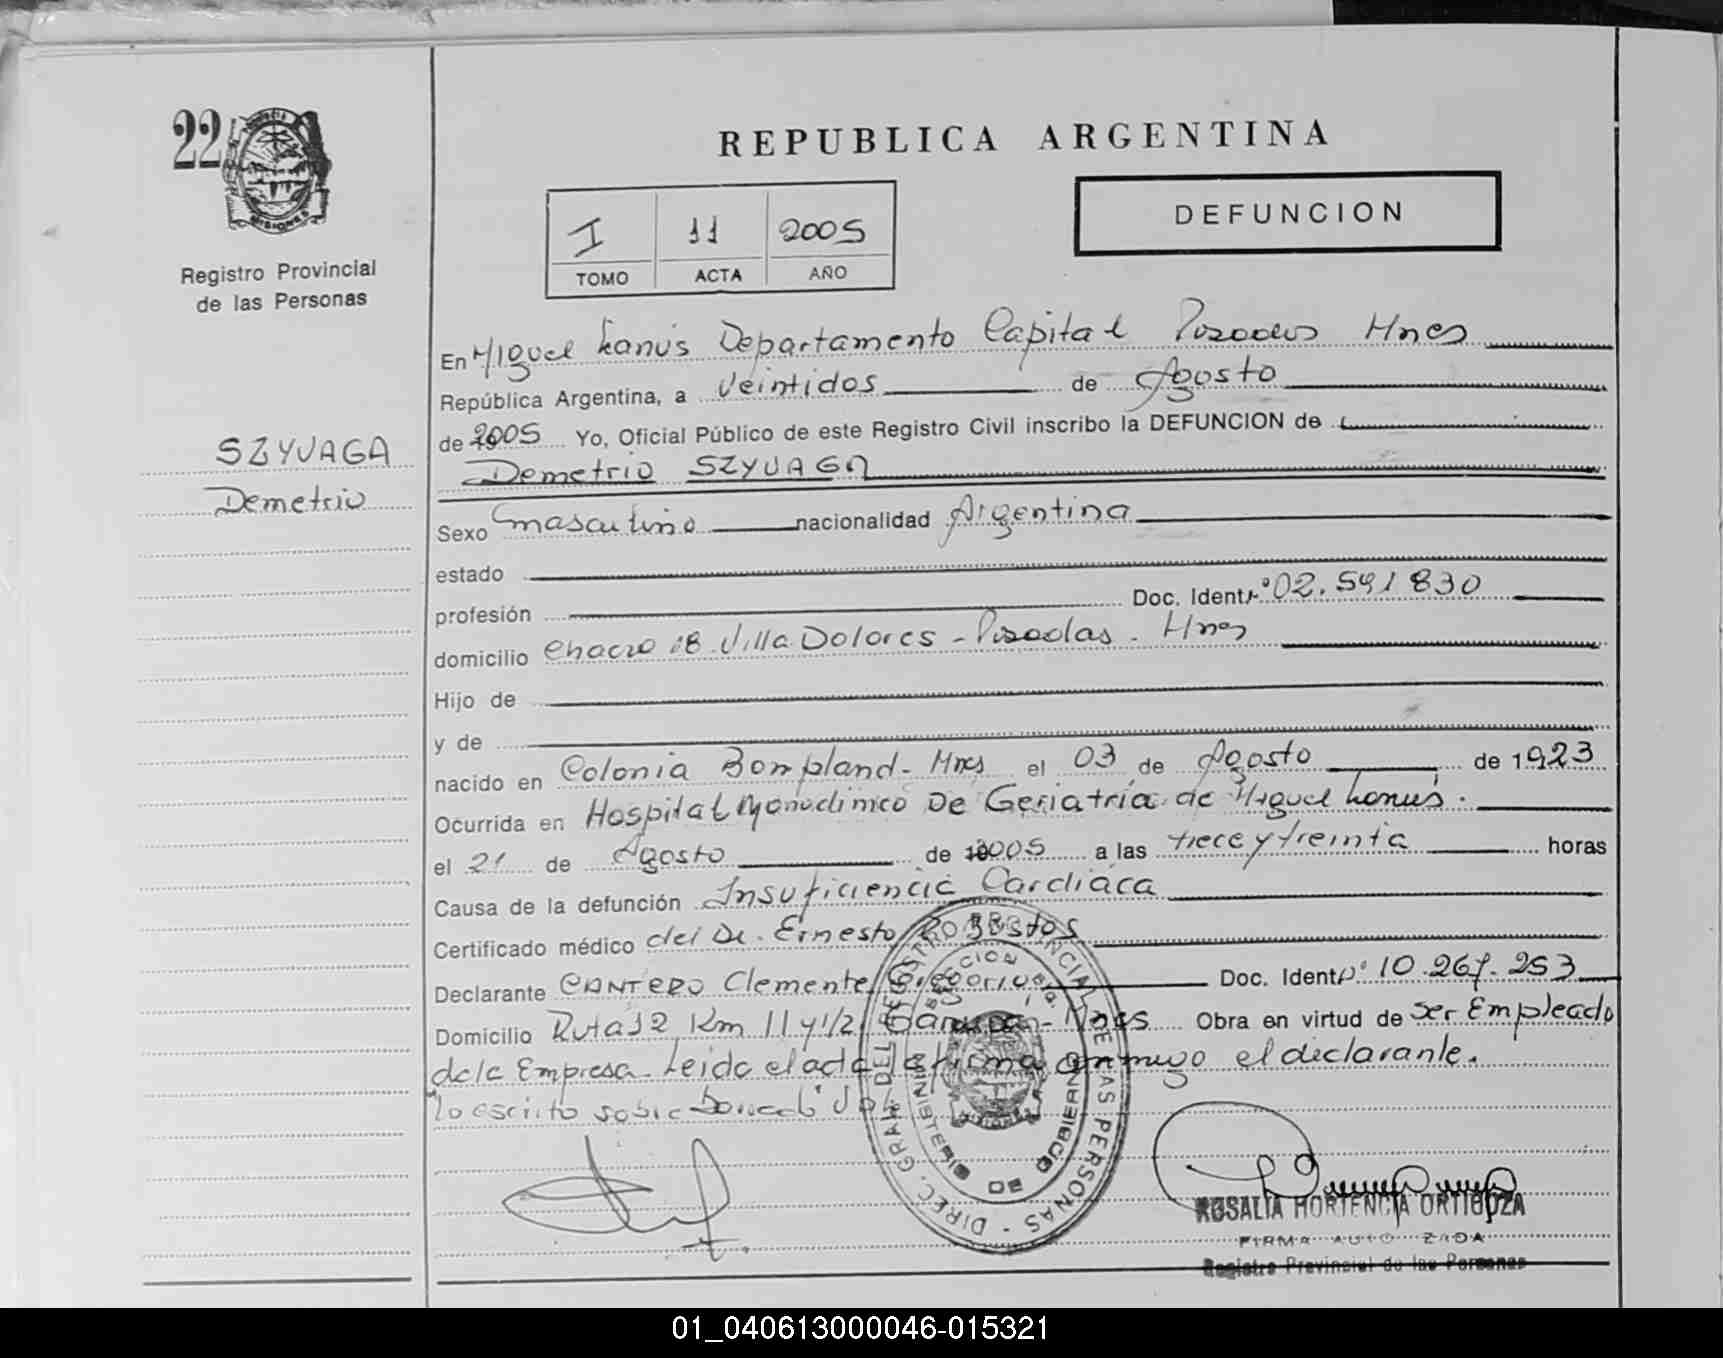 22
REPUBLICA ARGENTINA
DEFUNCION
I 11 2005
TOMO ACTA AÑO
Registro Provincial
de las Personas
SZYUAGA
Demetrio
En Miguel Lanús Departamento Capital Posadas Mnes
República Argentina, a Veintidos de Agosto
de 2005 Yo, Oficial Público de este Registro Civil inscribo la DEFUNCION de
Demetrio SZYUAGA
Sexo masculino nacionalidad Argentina
estado
profesión Doc. Ident. Nº 02.591830
domicilio Chacra 18 Villa Dolores - Posadas - Mnes
Hijo de
y de
nacido en Colonia Bompland - Mnes el 03 de Agosto de 1923
Ocurrida en Hospital Monoclinico De Geriatria de Miguel Lanus.
el 21 de Agosto de 2005 a las trece y treinta horas
Causa de la defunción Insuficiencia Cardiaca
Certificado médico del Dr. Ernesto R. Bustos
Declarante CANTERO Clemente Gregorio Doc. Ident. Nº 10.267.253
Domicilio Ruta 12 Km 11 y 1/2 Garupa - Mnes Obra en virtud de Ser Empleado
de la Empresa. Leida el acta la firma conmigo el declarante.
Lo escrito sobre borrado
DIREC. GRAL. DEL REGISTRO PROVINCIAL DE LAS PERSONAS
MINISTERIO DE GOBIERNO
ROSALIA HORTENCIA ORTIGOZA
FIRMA AUTORIZADA
Registro Provincial de las Personas
01_040613000046-015321